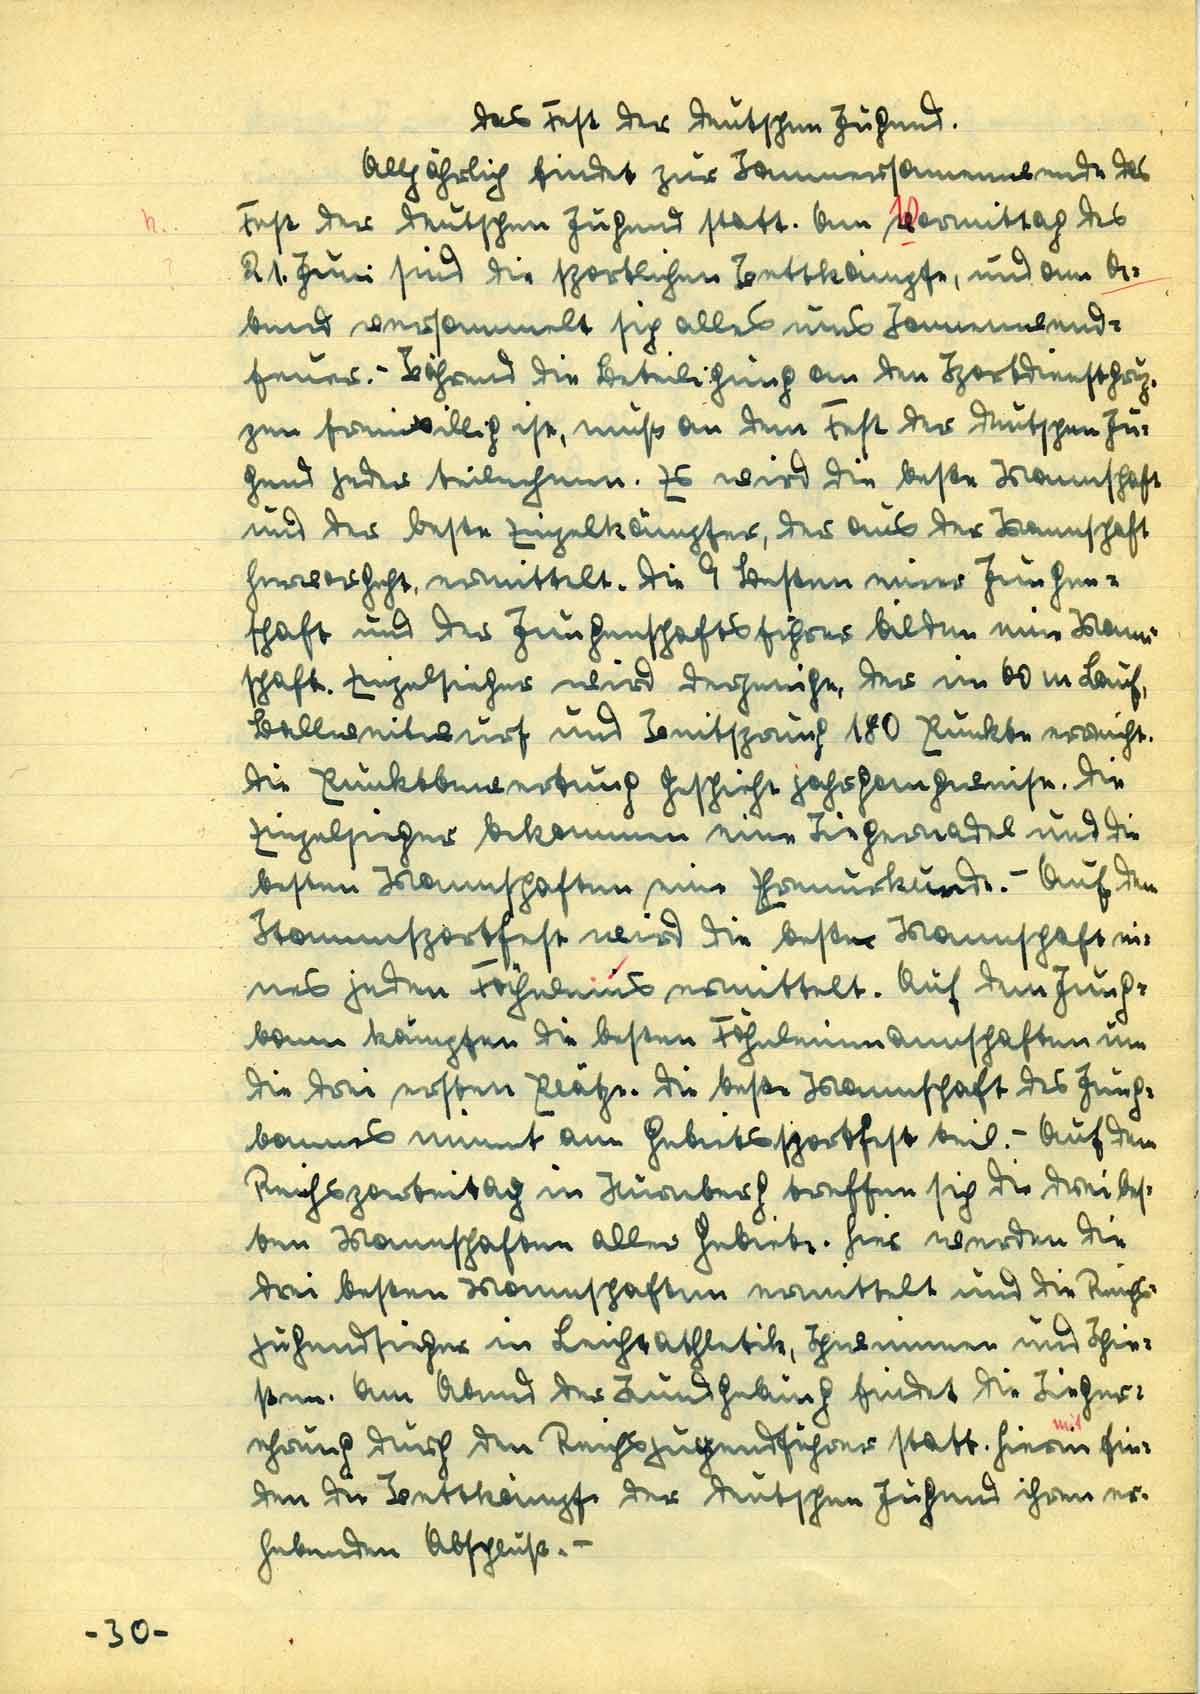 Das Fest der deutschen Jugend.
Alljährlich findet zur Sommersonnenwende das
Fest der deutschen Jugend statt. Am Vormittag des
21. Juni sind die sportlichen Wettkämpfe, und am A-
bend versammelt sich alles ums Sonnenwend-
feuer.- Während die Beteiligung an den Sportdienstgrup-
pen freiwillig ist, muß an dem Fest der deutschen Ju-
gend jeder teilnehmen. Es wird die beste Mannschaft
und der beste Einzelkämpfer, der aus der Mannschaft
hervorgeht, ermittelt. Die 9 Besten einer Jungen-
schaft und der Jungenschaftsführer bilden eine Mann-
schaft. Einzelsieger wird derjenige, der im 60 m Lauf,
Ballweitwurf und Weitsprung 180 Punkte erreicht.
Die Punktbewertung geschieht jahrgangweise. Die
Einzelsieger bekommen eine Siegernadel und die
besten Mannschaften eine Ehrenurkunde.- Auf dem
Stammsportfest wird die beste Mannschaft ei-
nes jeden Fähnleins ermittelt. Auf dem Jung-
bann kämpfen die besten Fähnleinmannschaften um
die drei ersten Plätze. Die beste Mannschaft des Jung-
bannes nimmt am Gebietssportfest teil.- Auf dem
Reichsparteitag in Nürnberg treffen sich die drei bes-
ten Mannschaften aller Gebiete. Hier werden die
drei besten Mannschaften ermittelt und die Reichs-
jugendsieger in Leichtathletik, Schwimmen und Schie-
ßen. Am Abend der Kundgebung findet die Sieger-
mit
ehrung durch den Reichsjugendführer statt. Hierin fin-
den die Wettkämpfe der deutschen Jugend ihren er-
hebenden Abschluß.-
-30-